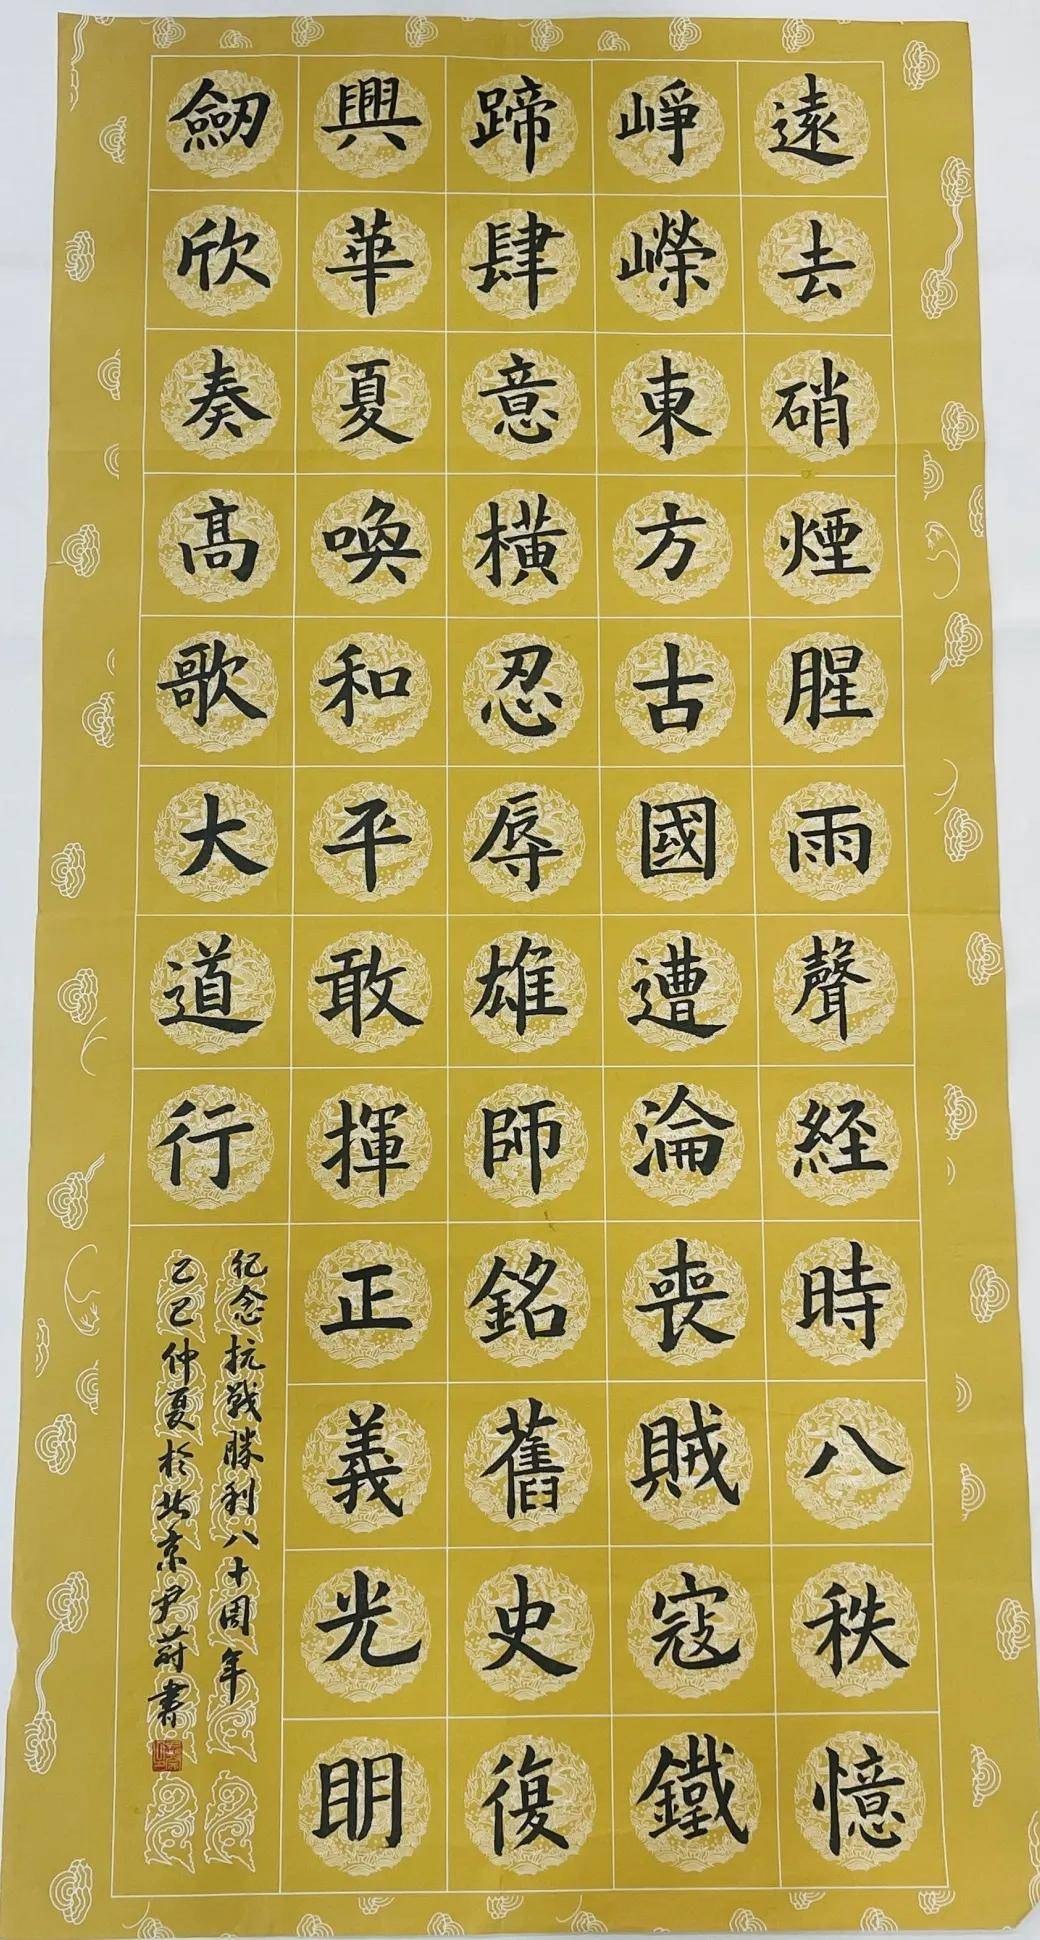 遠去硝煙腥雨聲経時八秩憶
崢嶸東方古國遭淪喪賊寇鐵
蹄肆意橫忍辱雄師銘舊史復
興華夏喚和平敢揮正義光明
劒欣奏高歌大道行
纪念抗战勝利八十周年
乙巳仲夏於北京尹蔚書